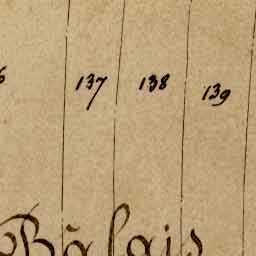 137 138 139
Bâlais